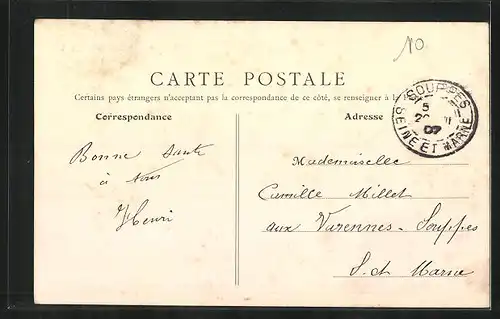 10
CARTE POSTALE
Certains pays étrangers n'acceptant pas la correspondance de ce côté, se renseigner à la
SOUPPES
5
07
SEINE ET MARNE
Correspondance
Adresse
Bonne Santé
à tous
Henri
Mademoiselle
Camille Millet
aux Varennes - Souppes
S. et Marne